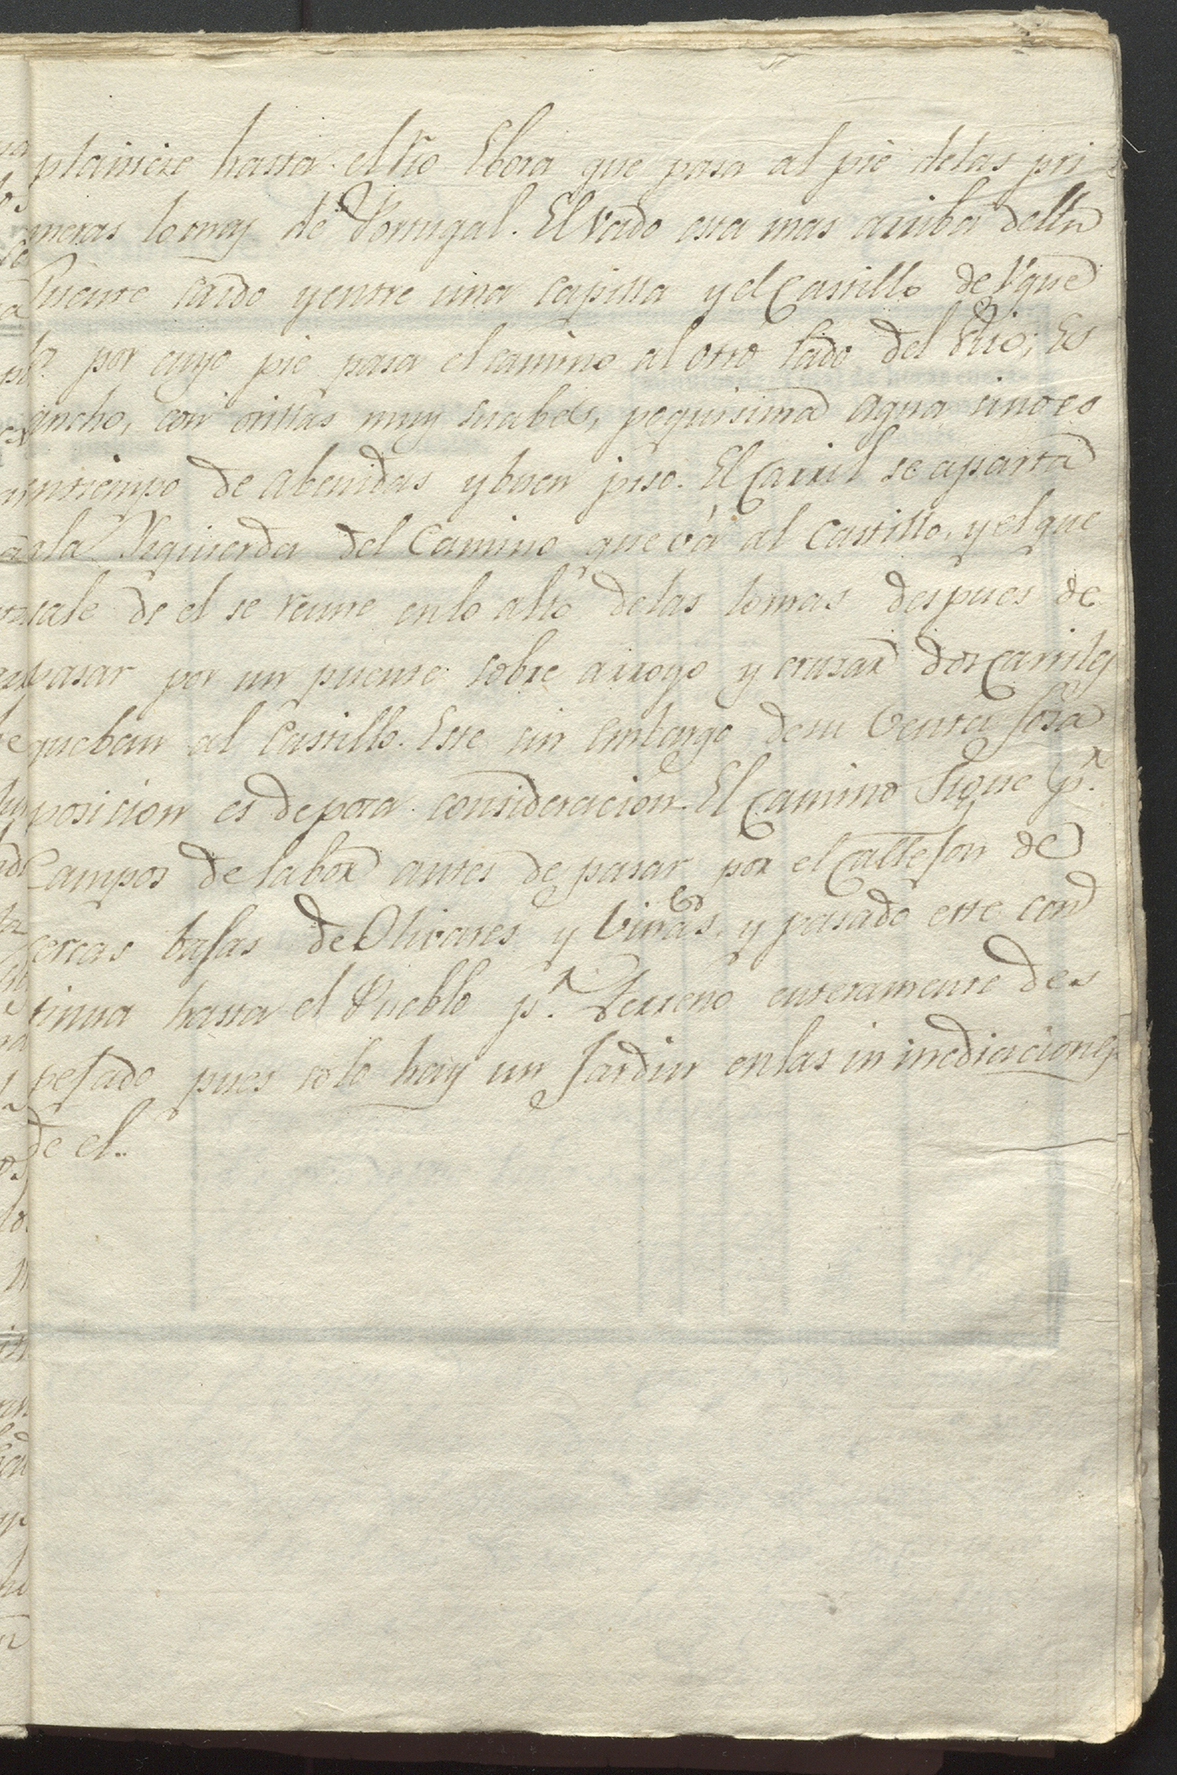 planicie hasta el rio Ebora que pasa al pie delas pri
meras lomas de Portugal. El vado esta mas arriba dettn
Puente caido y entre una capilla y el Castillo de Ugue
la por cuyo pie pasa el camino al otro lado del Rio; Es
ancho, con orillas muy suabes, poquisima agua sino es
entiempo de abenidas y buen piso. El Carril se aparta
ala Izquierda del Camino que vá al Castillo, y el que
sale de el se reune en lo alto delas lomas despues de
pasar por un puente sobre arroyo y crusar dos carriles
queban al Castillo. Este sin embargo desu Ventajosa
posicion es depoca consideracion. El Camino sigue p.r
Campos de labor antes de pasar por el Callejon de
cercas bajas de Olivares y Viñas, y pasado este con
tinua hasta el Pueblo p.r Terreno enteramente des
pejado pues solo hay un Jardin enlas inmediaciones
de el..